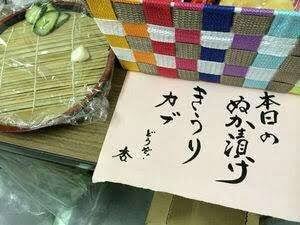 本日の
ぬか漬け
きうり
カブ
どうぞ。
杏